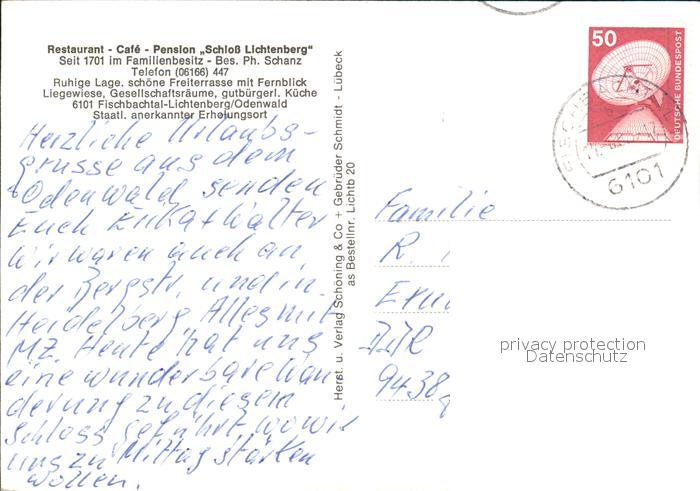 Restaurant - Café - Pension „Schloß Lichtenberg"
Seit 1701 im Familienbesitz - Bes. Ph. Schanz
Telefon (06166) 447
Ruhige Lage, schöne Freiterrasse mit Fernblick
Liegewiese, Gesellschaftsräume, gutbürgerl. Küche
6101 Fischbachtal-Lichtenberg/Odenwald
Staatl. anerkannter Erholungsort
Herzliche Urlaubs-
grüsse aus dem
Odenwald senden
Euch Erika + Walter
Wir waren auch an
der Bergstr. und in
Heidelberg Alles mit
MZ. Heute hat uns
eine wunderbare Wan
derung zu diesem
Schloss geführt, wo wir
uns zu Mittag stärken
wollen.
Herst. u. Verlag Schöning & Co + Gebrüder Schmidt - Lübeck
as Bestellnr. Lichtb 20
50
DEUTSCHE BUNDESPOST
6101
Familie
R.
DDR
9438
privacy protection
Datenschutz